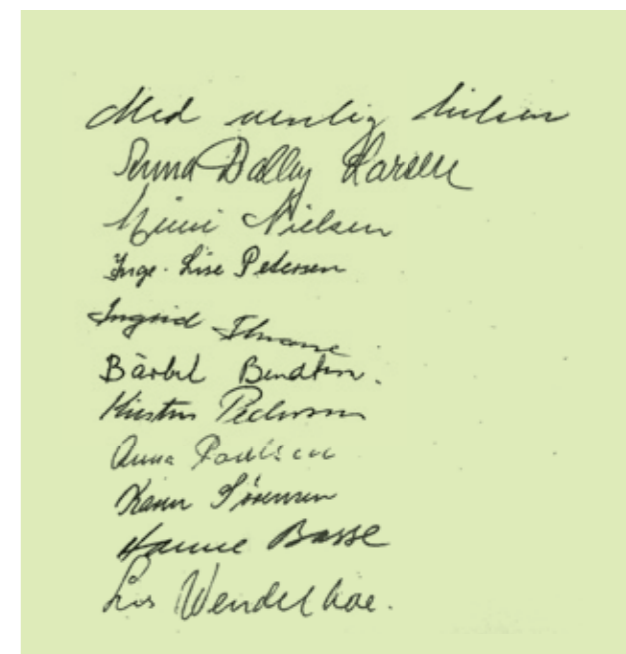 Med venlig hilsen
Anna Dally Larsen
Mimi Nielsen
Inge-Lise Petersen
Ingrid Thrane
Bärbel Bendtsen.
Kirsten Pedersen
Anna Poulsen
Karen Sørensen
Hanne Basse
Lis Wendelboe.